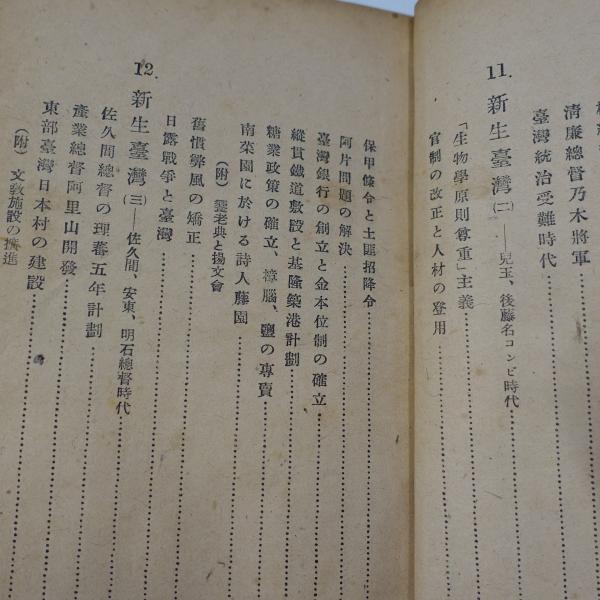 清廉總督乃木將軍
臺灣統治受難時代
11. 新生臺灣(二)——兒玉、後藤名コンビ時代
「生物學原則尊重」主義
官制の改正と人材の登用
保甲條令と土匪招降令
阿片問題の解決
臺灣銀行の創立と金本位制の確立
縱貫鐵道敷設と基隆築港計劃
糖業政策の確立、樟腦、鹽の專賣
南菜園に於ける詩人藤園
(附) 饗老典と揚文會
舊慣弊風の矯正
日露戰爭と臺灣
12. 新生臺灣(三)——佐久間、安東、明石總督時代
佐久間總督の理蕃五年計劃
產業總督阿里山開發
東部臺灣日本村の建設
(附) 文敎施設の擴進